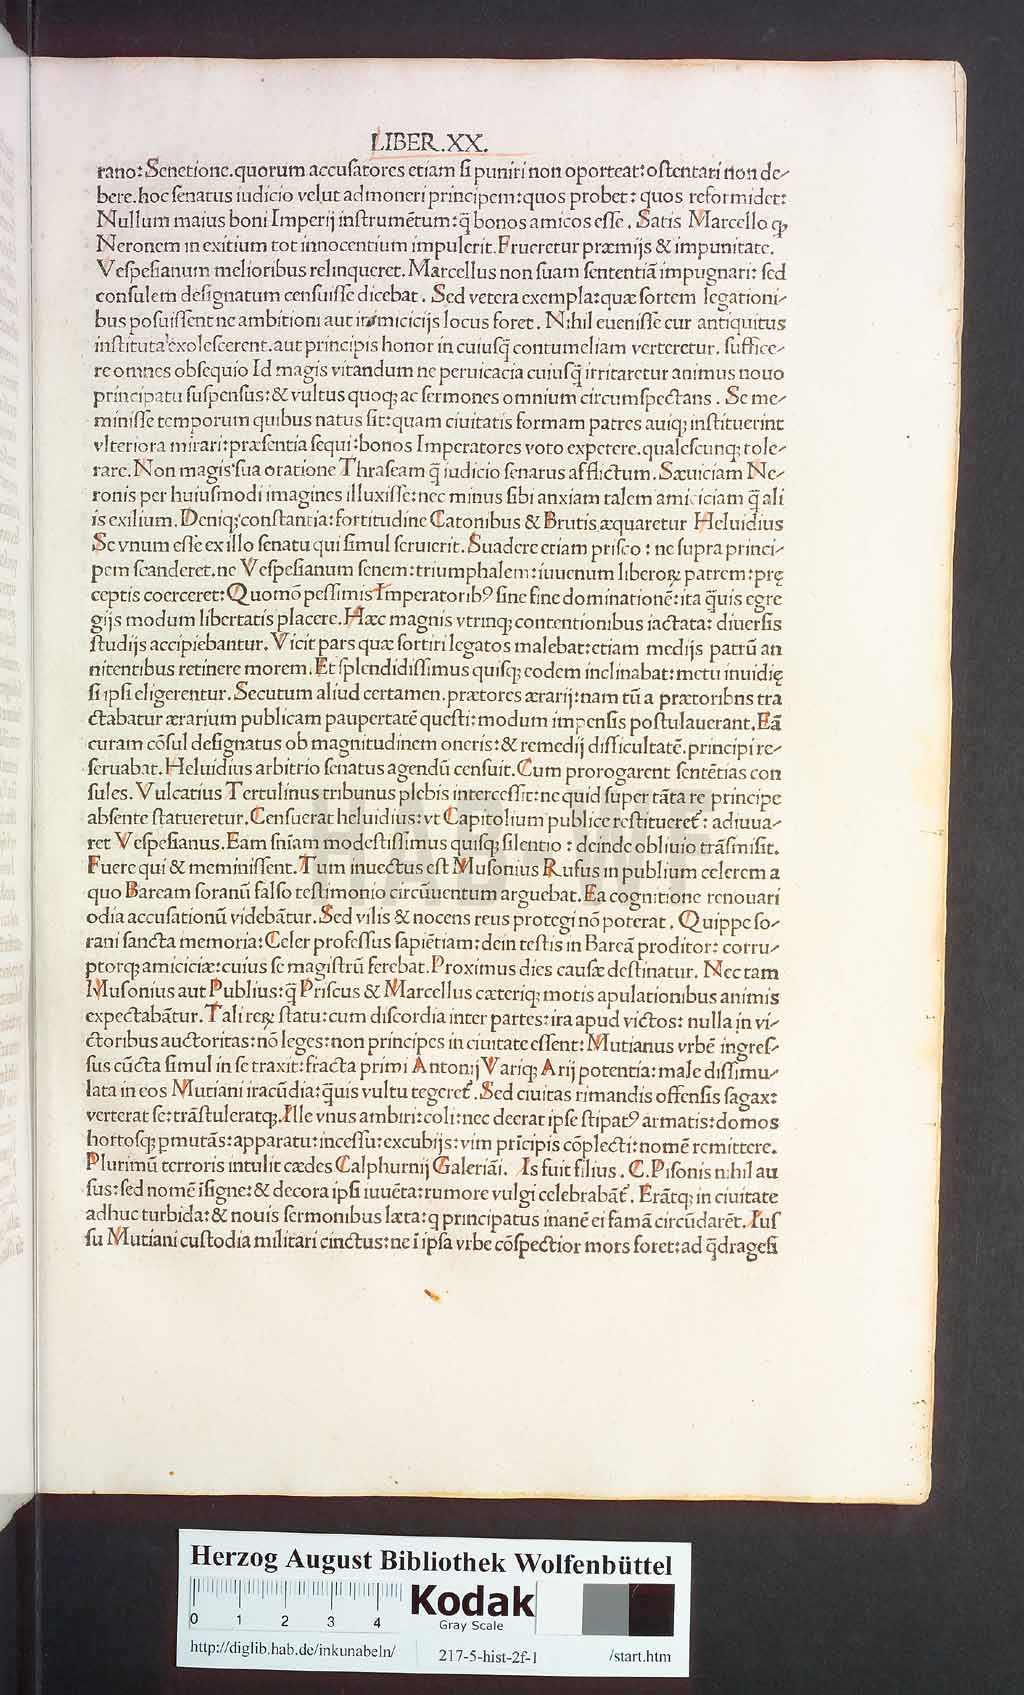 LIBER.XX.
rano: Senetione. quorum accuſatores etiam ſi puniri non oporteat: oſtentari non de-
bere. hoc ſenatus iudicio velut admoneri principem: quos probet: quos reformidet:
Nullum maius boni Imperij inſtrumētum: q̄ bonos amicos eſſe. Satis Marcello ꝙ
Neronem in exitium tot innocentium impulerit. Frueretur præmijs & impunitate.
Veſpeſianum melioribus relinqueret. Marcellus non ſuam ſententiā impugnari: ſed
conſulem deſignatum cenſuiſſe dicebat. Sed vetera exempla: quæ ſortem legationi-
bus poſuiſſent ne ambitioni aut inimicicijs locus foret. Nihil eueniſſe cur antiquitus
inſtituta exoleſcerent. aut principis honor in cuiuſq̄ contumeliam verteretur. ſuffice-
re omnes obſequio Id magis vitandum ne peruicacia cuiuſq̄ irritaretur animus nouo
principatu ſuſpenſus: & vultus quoq; ac ſermones omnium circumſpectans. Se me-
miniſſe temporum quibus natus ſit: quam ciuitatis formam patres auiq; inſtituerint
vlteriora mirari: præſentia ſequi: bonos Imperatores voto expetere. qualeſcunq; tole-
rare. Non magis ſua oratione Thraſeam q̄ iudicio ſenatus afflictum. Sæuiciam Ne-
ronis per huiuſmodi imagines illuxiſſe: nec minus ſibi anxiam talem amiciciam q̄ ali
is exilium. Deniq; conſtantia: fortitudine Catonibus & Brutis æquaretur Heluidius
Se vnum eſſe ex illo ſenatu qui ſimul ſeruierit. Suadere etiam priſco: ne ſupra princi-
pem ſcanderet. ne Veſpeſianum ſenem: triumphalem: iuuenum liberoꝝ patrem: prę
ceptis coerceret: Quomō peſſimis Imperatorib⁹ ſine fine dominationē: ita q̄uis egre
gijs modum libertatis placere. Hæc magnis vtrinq; contentionibus iactata: diuerſis
ſtudijs accipiebantur. Vicit pars quæ ſortiri legatos malebat: etiam medijs patrū an
nitentibus retinere morem. Et ſplendidiſſimus quiſq; eodem inclinabat: metu inuidię
ſi ipſi eligerentur. Secutum aliud certamen. prætores ærarij: nam tū a prætoribns tra
ctabatur ærarium publicam paupertatē queſti: modum impenſis poſtulauerant. Eā
curam cōſul deſignatus ob magnitudinem oneris: & remedij difficultatē. principi re-
ſeruabat. Heluidius arbitrio ſenatus agendū cenſuit. Cum prorogarent ſentētias con
ſules. Vulcatius Tertulinus tribunus plebis interceſſit: ne quid ſuper tāta re principe
abſente ſtatueretur. Cenſuerat heluidius: vt Capitolium publice reſtitueret᷑: adiuua-
ret Veſpeſianus. Eam ſniam modeſtiſſimus quiſq; ſilentio: deinde obliuio trāſmiſit.
Fuere qui & meminiſſent. Tum inuectus eſt Muſonius Rufus in publium celerem a
quo Baream ſoranū falſo teſtimonio circūuentum arguebat. Ea cognitione renouari
odia accuſationū videbātur. Sed vilis & nocens reus protegi nō poterat. Quippe ſo-
rani ſancta memoria: Celer profeſſus ſapiētiam: dein teſtis in Bareā proditor: corru-
ptorq; amiciciæ: cuius ſe magiſtrū ferebat. Proximus dies cauſæ deſtinatur. Nec tam
Muſonius aut Publius: q̄ Priſcus & Marcellus cæteriq; motis apulationibus animis
expectabātur. Tali reꝝ ſtatu: cum diſcordia inter partes: ira apud victos: nulla in vi-
ctoribus auctoritas: nō leges: non principes in ciuitate eſſent: Mutianus vrbē ingreſ-
ſus cūcta ſimul in ſe traxit: fracta primi Antonij Variq; Arij potentia: male diſſimu-
lata in eos Mutiani iracūdia: q̄uis vultu tegeret᷑. Sed ciuitas rimandis offenſis ſagax:
verterat ſe: trāſtuleratq;. Ille vnus ambiri: coli: nec deerat ipſe ſtipat⁹ armatis: domos
hortoſq; ꝑmutās: apparatu: inceſſu: excubijs: vim prīcipis cōplecti: nomē remittere.
Plurimū terroris intulit cædes Calphurnij Galeriāi. Is fuit filius. C. Piſonis nihil au
ſus: ſed nomē īſigne: & decora ipſi iuuēta: rumore vulgi celebrabāt᷑. Erātq; in ciuitate
adhuc turbida: & nouis ſermonibus læta: q principatus inanē ei famā circūdarēt. Iuſ
ſu Mutiani cuſtodia militari cinctus: ne ī ipſa vrbe cōſpectior mors foret: ad q̄drageſi
HAB WF
Herzog August Bibliothek Wolfenbüttel
0 1 2 3 4
Kodak
Gray Scale
http://diglib.hab.de/inkunabeln/ 217-5-hist-2f-1 /start.htm